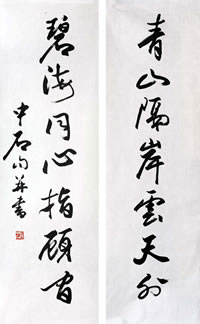 青山隔岸雲天外
碧海同心指顧間
中石向并書